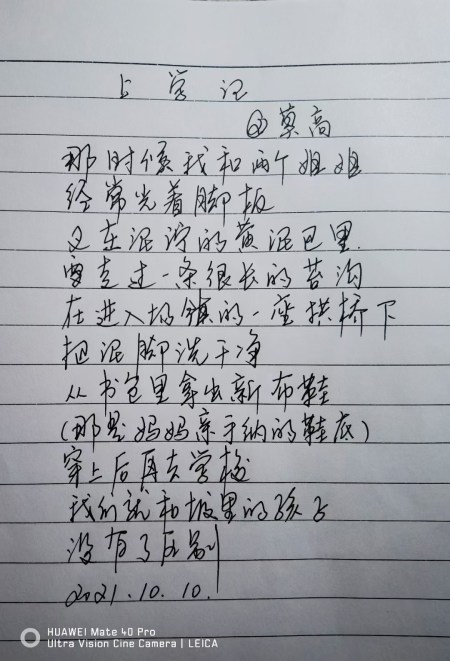 上学记
@莫高
那时候我和两个姐姐
经常光着脚板
走在泥泞的黄泥巴里
要走过一条很长的苕沟
在进入场镇的一座拱桥下
把泥脚洗干净
从书包里拿出新布鞋
(那是妈妈亲手纳的鞋底)
穿上后再去学校
我们就和坝里的孩子
没有了区别
2021.10.10.
HUAWEI Mate 40 Pro
Ultra Vision Cine Camera | LEICA